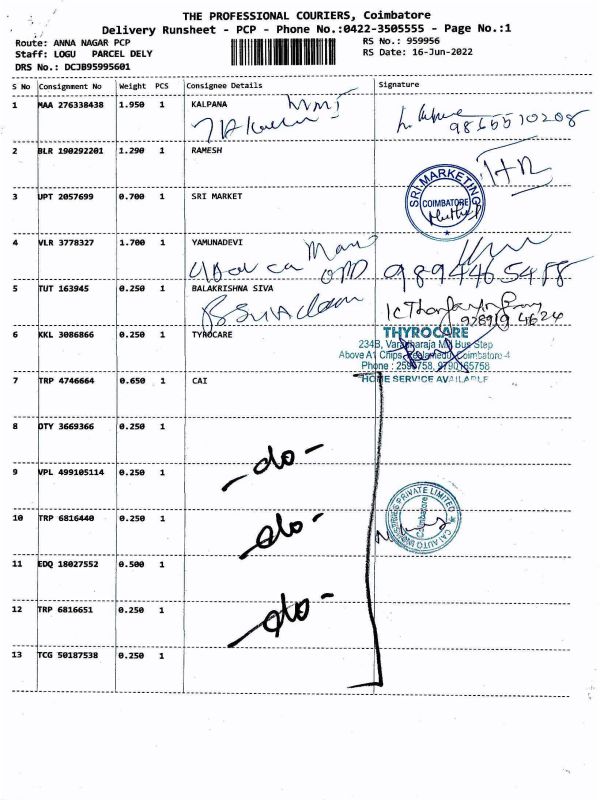 THE PROFESSIONAL COURIERS, Coimbatore
Delivery Runsheet - PCP - Phone No.:0422-3505555 - Page No.:1
Route: ANNA NAGAR PCP
RS No.: 959956
Staff: LOGU PARCEL DELY
RS Date: 16-Jun-2022
DRS No.: DCJB95995601
S No Consignment No Weight PCS Consignee Details Signature
1 MAA 276338438 1.950 1 KALPANA
9865510208
2 BLR 190292201 1.290 1 RAMESH
3 UPT 2057699 0.700 1 SRI MARKET
SRI MARKETING
COIMBATORE
4 VLR 3778327 1.700 1 YAMUNADEVI
9894465488
5 TUT 163945 0.250 1 BALAKRISHNA SIVA
6 KKL 3086866 0.250 1 TYROCARE
THYROCARE
234B, Bus Step
Above A1 Chips, Coimbatore-4
Phone :
HOME SERVICE AVAILABLE
7 TRP 4746664 0.650 1 CAI
8 OTY 3669366 0.250 1
- do -
9 VPL 499105114 0.250 1
CAI AUTO INDUSTRIES PRIVATE LIMITED
Coimbatore
10 TRP 6816440 0.250 1
- do -
11 EDQ 18027552 0.500 1
12 TRP 6816651 0.250 1
- do -
13 TCG 50187538 0.250 1